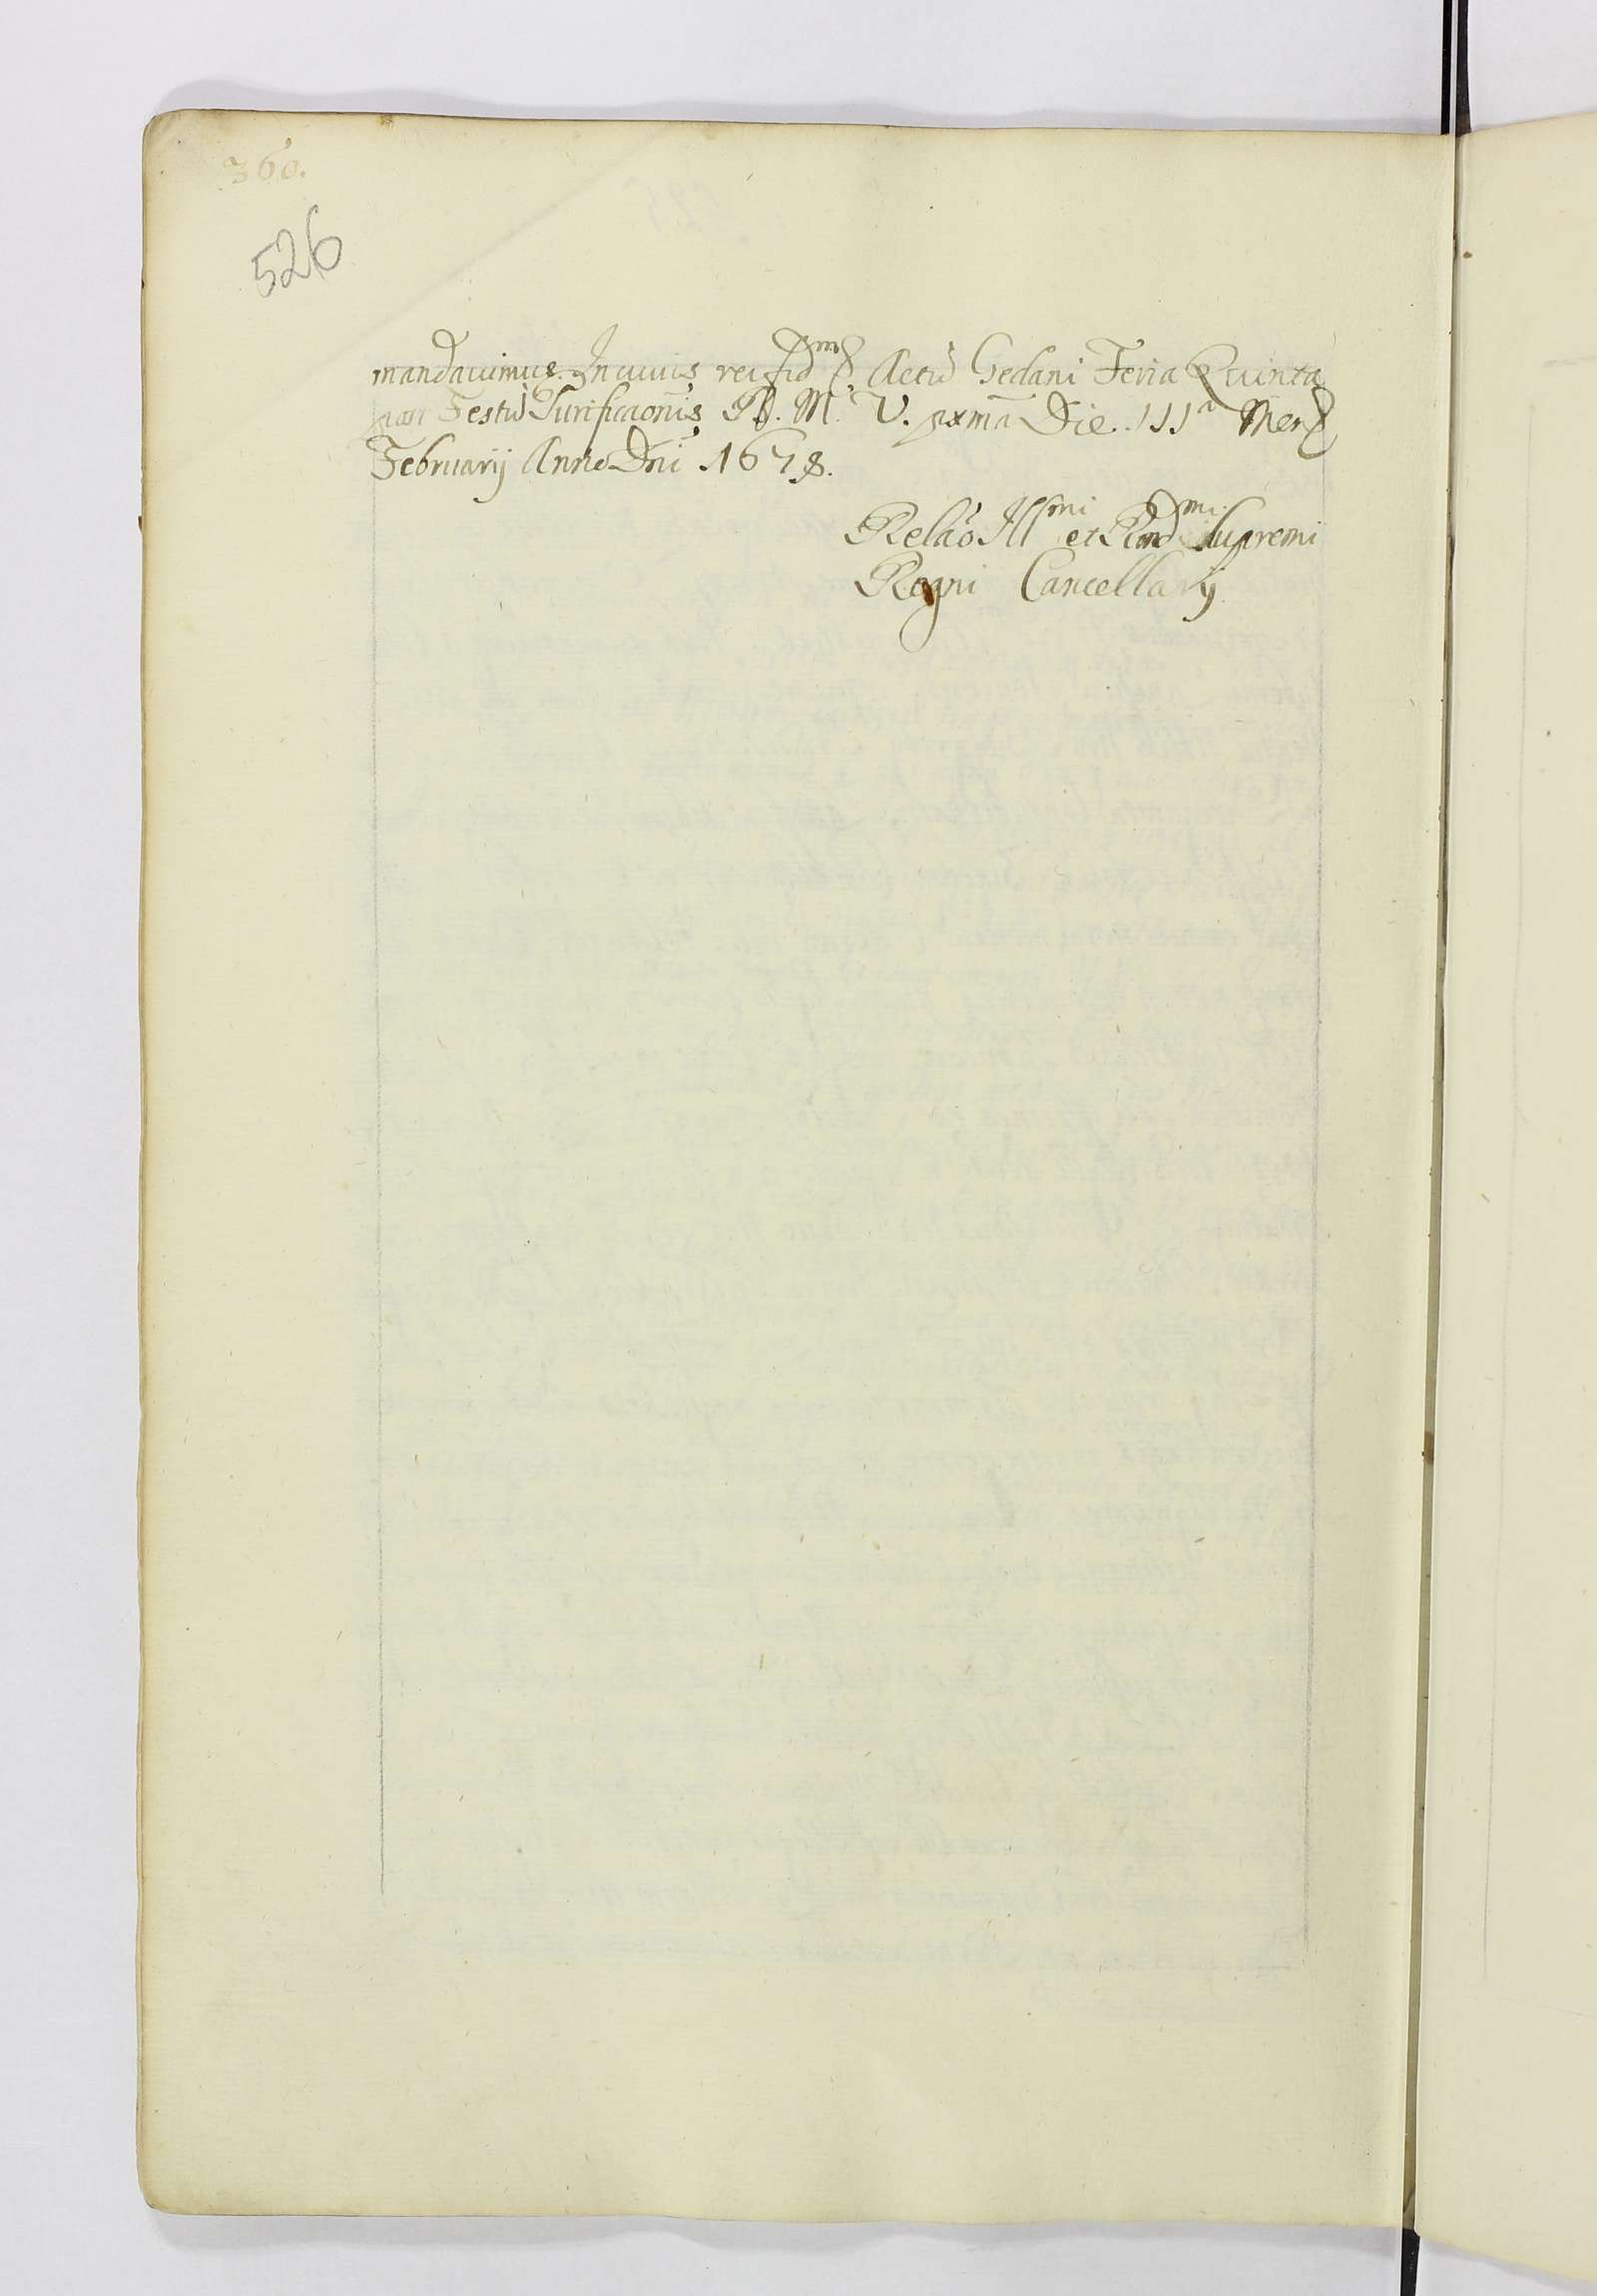 360.
526
mandavimus. In cuius rei fid^m &. Actũ Gedani Feria Quinta
post Festũ Purificaõnis B. M. V. pxmã Die III^a Mens
Februarij Anno Dni 1678.
Relaõ Ill^mi et Rnd^mi Supremi
Regni Cancellarij